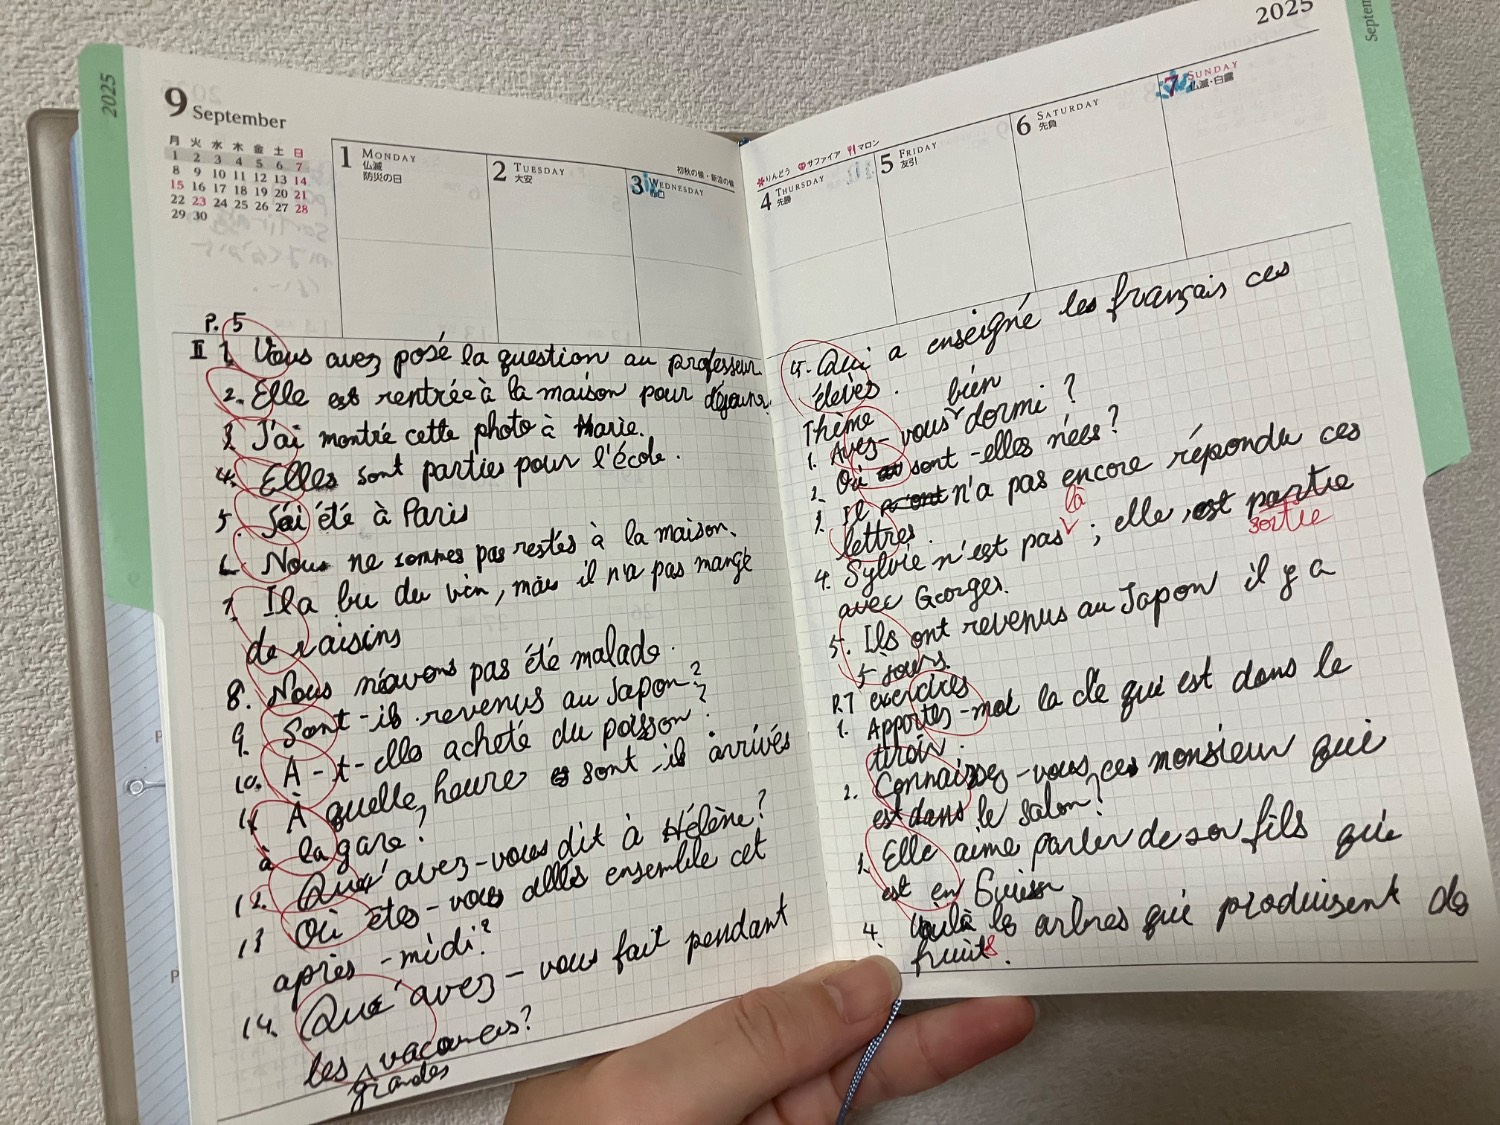 2025
9 September
月 火 水 木 金 土 日
1 2 3 4 5 6 7
8 9 10 11 12 13 14
15 16 17 18 19 20 21
22 23 24 25 26 27 28
29 30
1 MONDAY
仏滅
防災の日
2 TUESDAY
大安
初秋の候・新涼の候
3 WEDNESDAY
P. 5
II 1. Vous avez posé la question au professeur.
2. Elle est rentrée à la maison pour déjeuner
3. J'ai montré cette photo à Marie.
4. Elles sont parties pour l'école.
5. J'ai été à Paris
6. Nous ne sommes pas restés à la maison.
7. Il a bu du vin, mais il n'a pas mangé
de raisins
8. Nous n'avons pas été malade.
9. Sont-ils revenus au Japon?
10. A-t-elle acheté du poisson?
11. À quelle heure sont-ils arrivés
à la gare?
12. Qu'avez-vous dit à Hélène?
13 Où êtes-vous allés ensemble cet
après-midi?
14. Qu'avez-vous fait pendant
les vacances?
grandes
2025
Septem
りんどう サファイア マロン
4 THURSDAY
先勝
5 FRIDAY
友引
6 SATURDAY
先負
7 SUNDAY
仏滅・白露
15. Qui a enseigné les français ces
élèves.
Thème bien
1. Avez-vous dormi?
2. Où sont-elles nées?
3. Il n'a pas encore répondu ces
lettres.
la
4. Sylvie n'est pas ; elle est partie
sortie
avec Georges.
5. Ils ont revenus au Japon il y a
5 jours.
P.7 exercices
1. Apportez-moi la clé qui est dans le
tiroir.
2. Connaissez-vous ces monsieur qui
est dans le salon?
3. Elle aime parler de son fils qui
est en Suisse
4. Voilà les arbres qui produisent de
fruits.